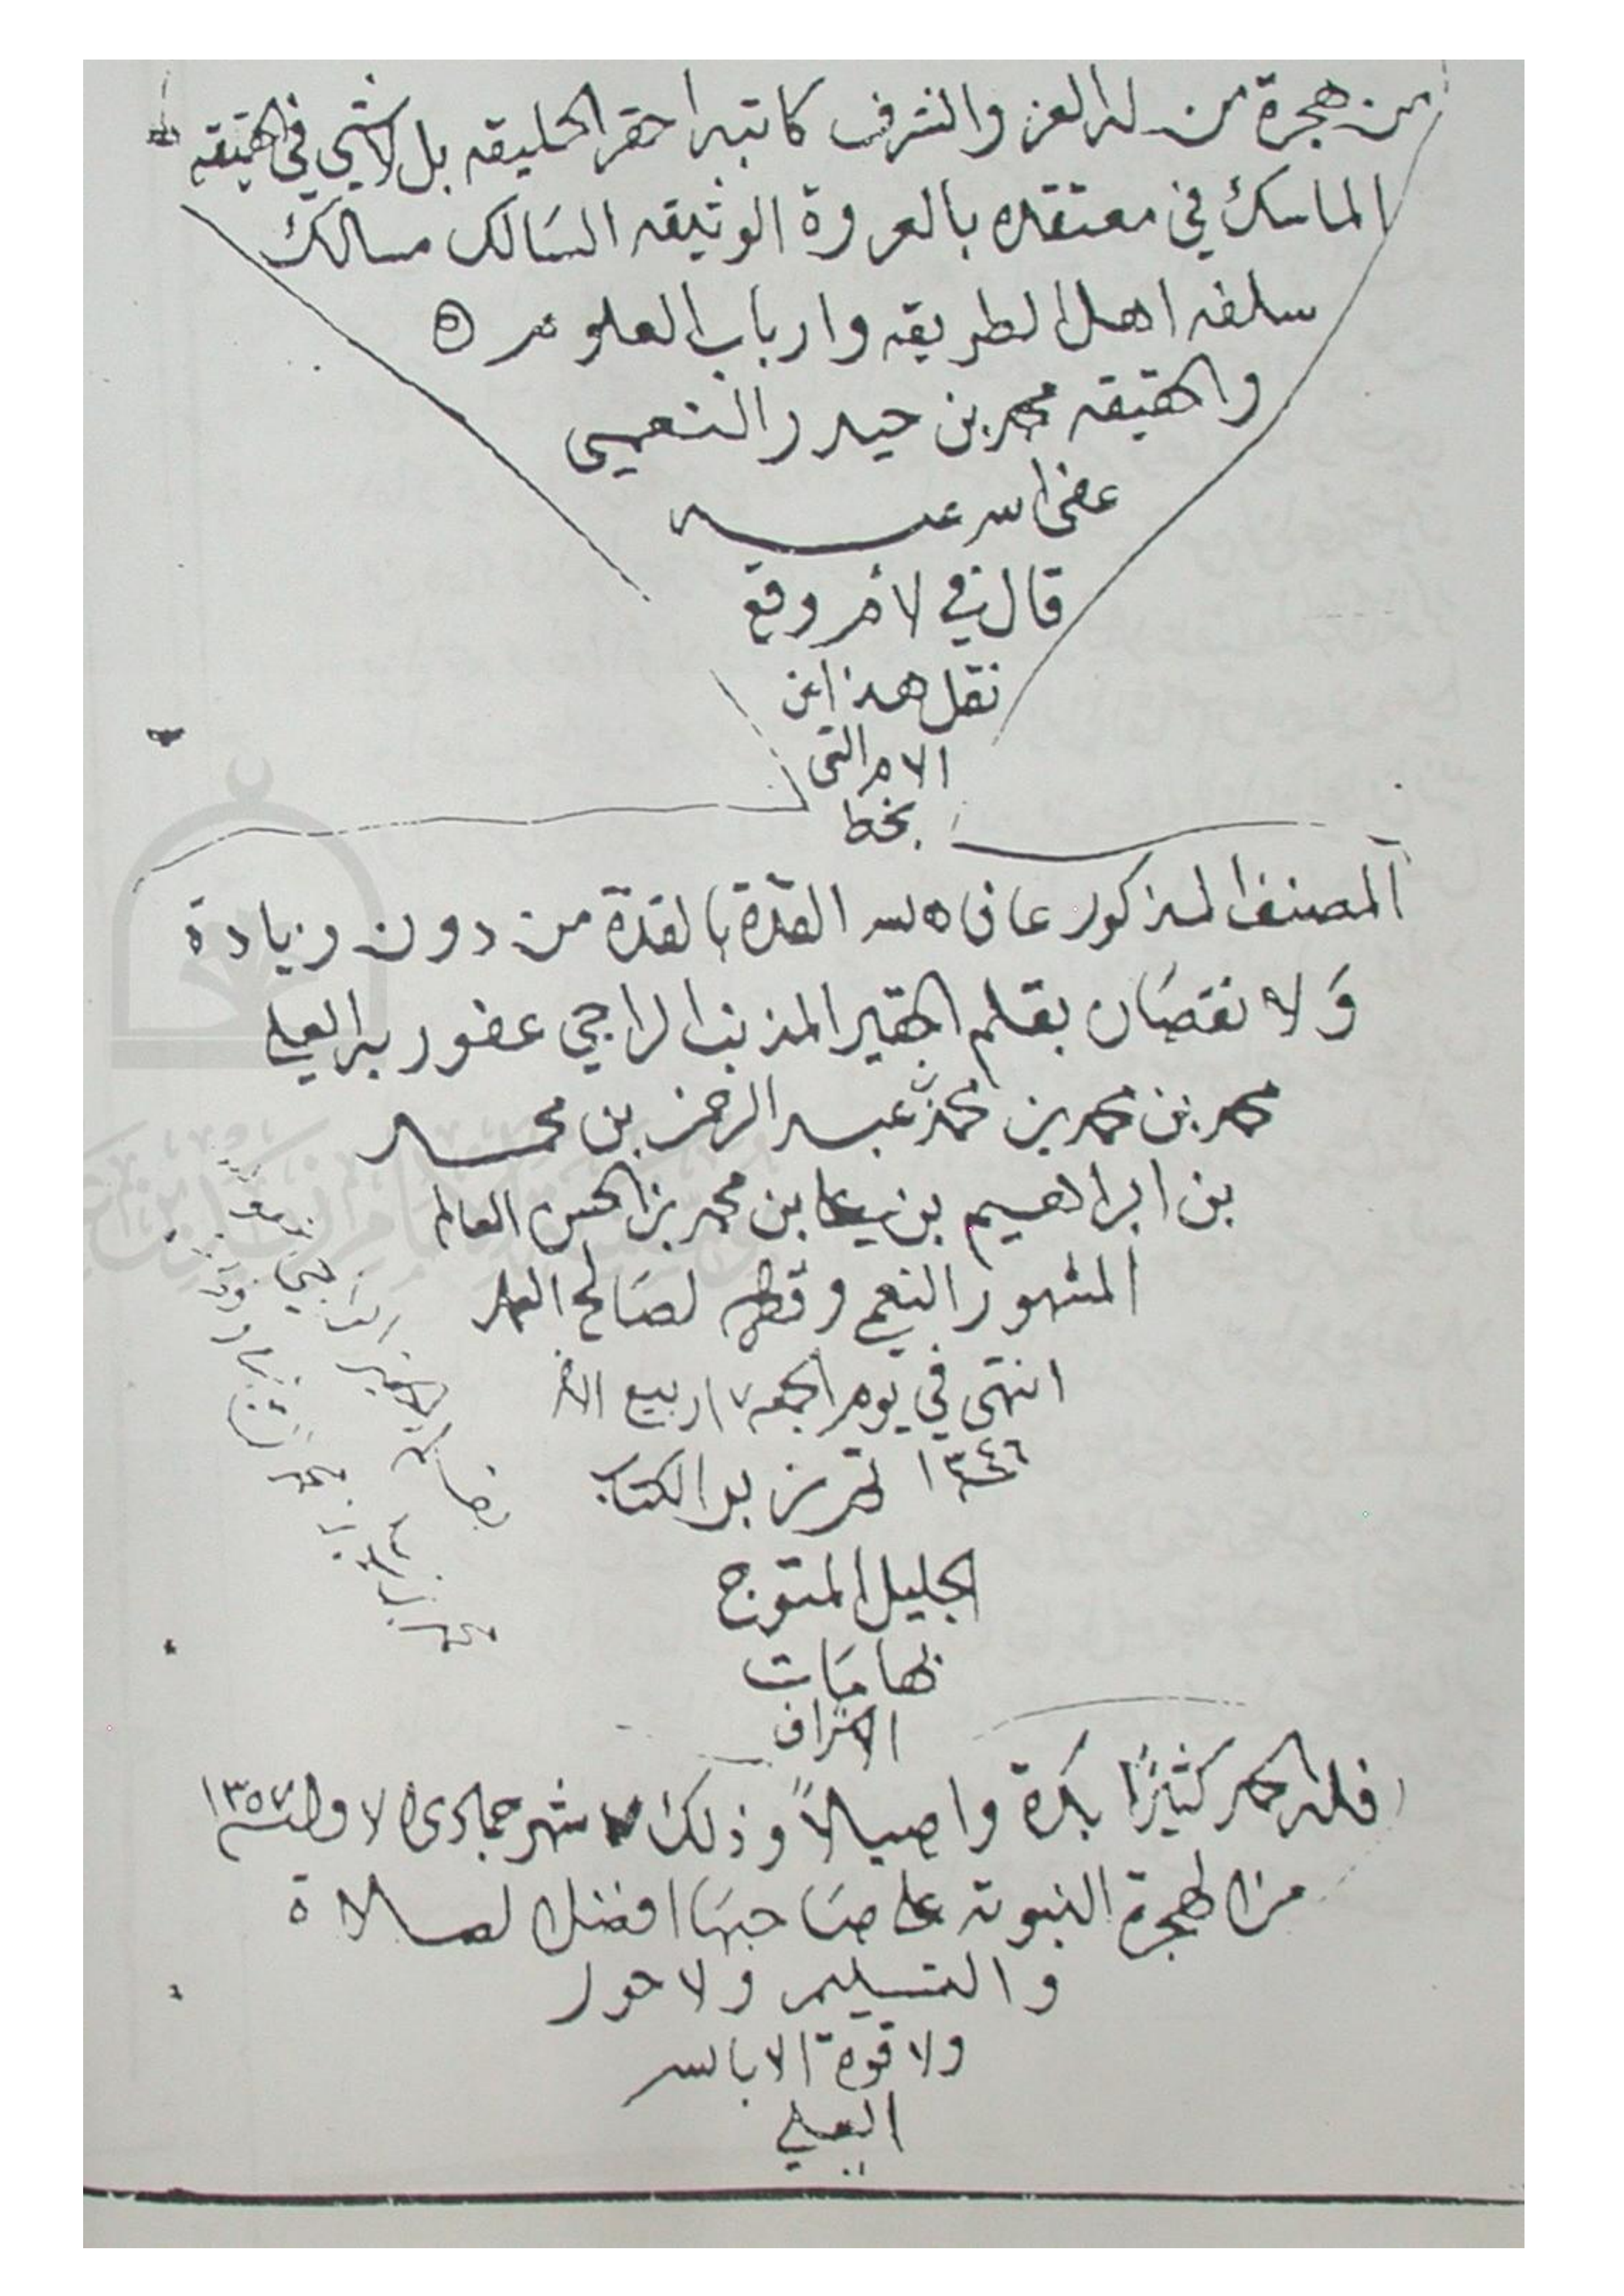 من هجرة من له العز والشرف كاتبه احقر الخليقه بل لاشي في الحقيقه
الماسك في معتقده بالعروة الوثيقه السالك مسالك
سلفه اهل الطريقه وارباب العلوم
والحقيقه محمد بن حيدر النعمي
عفى الله عنه
قال في لامر وقع
نقل هذا من
الام التي
بخط
المصنف المذكور عافاه الله القذة بالقذة من دون زيادة
ولا نقصان بقلم الحقير المذنب الراجي عفو ربه العلي
محمد بن محمد بن محمد بن عبد الرحمن بن محمد
بن ابراهيم بن يحيا بن محمد بن الحسن العالم
المشهور النعمي وفقه لصالح العمل
انتهى في يوم الجمعه ١٧ ربيع
١٣٤٦ تم زبر الكتاب
الجليل المتوج
بهامات
الاشراف
فلله الحمد كثيرًا بكرة واصيلاً وذلك ٧ شهر جمادى الاولى سنة ١٣٥٧
من الهجرة النبوية على صاحبها افضل الصلاة
والتسليم ولا حول
ولا قوة الا بالله
العلي